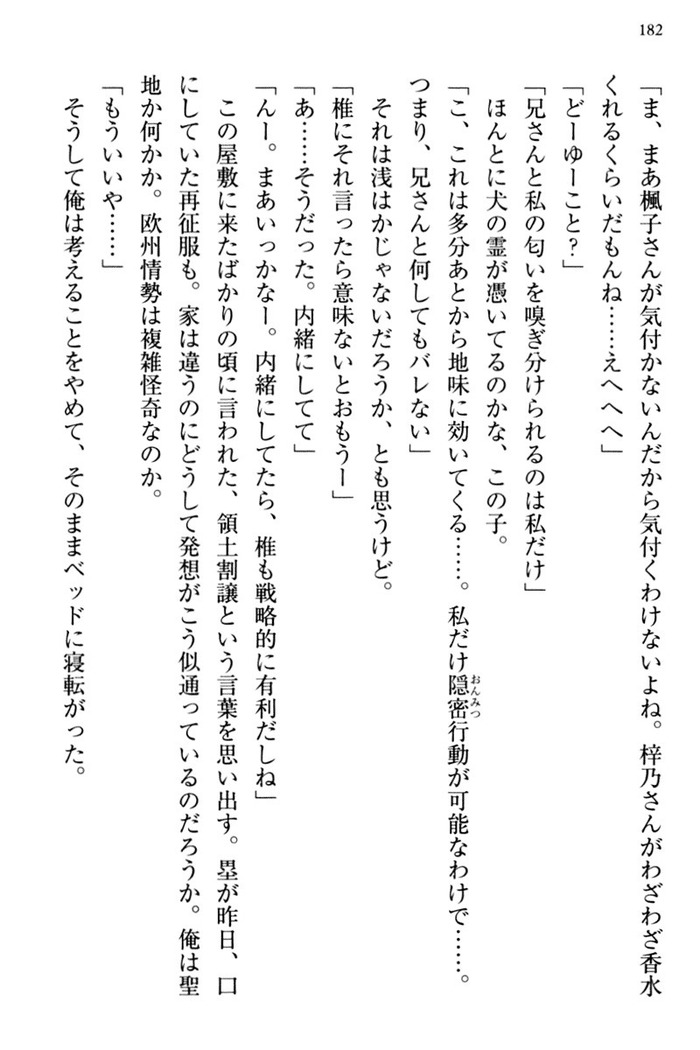 182
「ま、まあ楓子さんが気付かないんだから気付くわけないよね。梓乃さんがわざわざ香水
くれるくらいだもんね……えへへへ」
「どーゆーこと?」
「兄さんと私の匂いを嗅ぎ分けられるのは私だけ」
ほんとに犬の霊が憑いてるのかな、この子。
「こ、これは多分あとから地味に効いてくる……。私だけ隠密行動が可能なわけで……。
つまり、兄さんと何してもバレない」
それは浅はかじゃないだろうか、とも思うけど。
「椎にそれ言ったら意味ないとおもうー」
「あ……そうだった。内緒にしてて」
「んー。まあいっかなー。内緒にしてたら、椎も戦略的に有利だしね」
この屋敷に来たばかりの頃に言われた、領土割譲という言葉を思い出す。塁が昨日、口
にしていた再征服も。家は違うのにどうして発想がこう似通っているのだろうか。俺は聖
地か何かか。欧州情勢は複雑怪奇なのか。
「もういいや……」
そうして俺は考えることをやめて、そのままベッドに寝転がった。